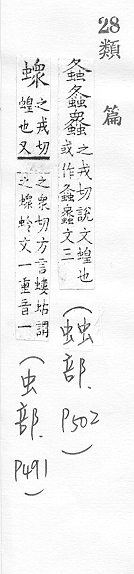 28
類
篇
螽𧑄𧖅 之戎切說文蝗也
或作螽𧑄文三
(䖵部. P502)
䗥 之戎切
蝗也又
之衆切方言螻蛄謂
之䗥蛉文一重音一
(虫部. P491)